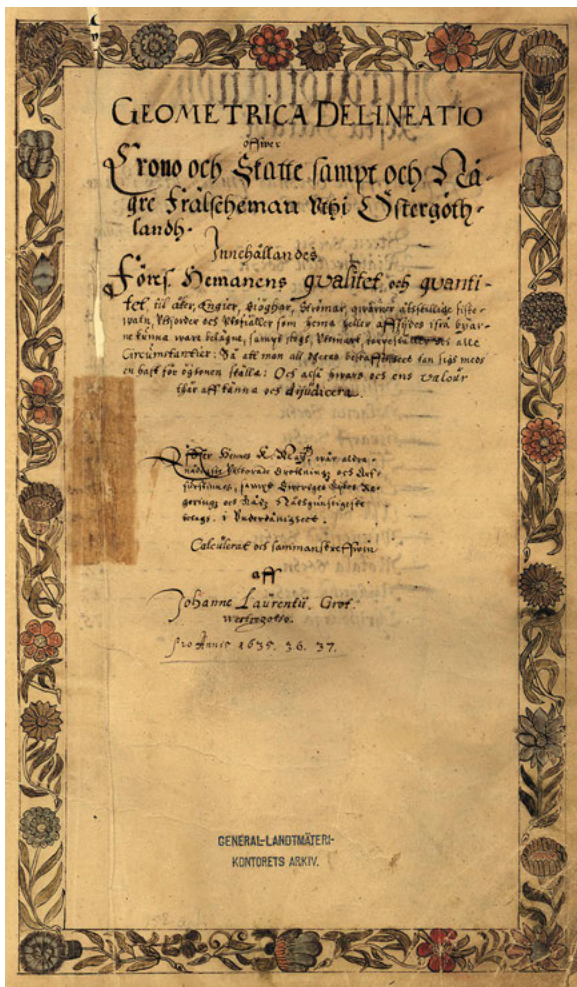 GEOMETRICA DELINEATIO
öffwer
Crono och Skatte sampt och Nå-
gre Frälseheman Vthi Östergöth-
landh.
Innehållandes
Föres. Hemanens qvalitet och qvanti-
tet, til åker, Engier, Skoghar, Strömar, qwarner åtskillige fiske-
och som hema heller affsijdes ifrå byar-
ne kunna wara belägne, sampt skogh, Vtmark, alle
Circumstantier: Så att man all deras beskaffenheet kan sigh medh
en hast för ögonen ställa: Och altså hwars och ens valour
ther aff känna och dijudicera.
Hennes K. May:tz wår aldra-
nådigste Drottnings och Arf-
furstinnes, sampt Sweriges Rikes Re-
gerings och Rådz
i Underdånigheet.
Calculerat och sammanskreffwin
aff
Johanne Laurentii. Grot.
Westrogotho.
pro Annis 1635. 36. 37.
GENERAL-LANDTMÄTERI-
KONTORETS ARKIV.